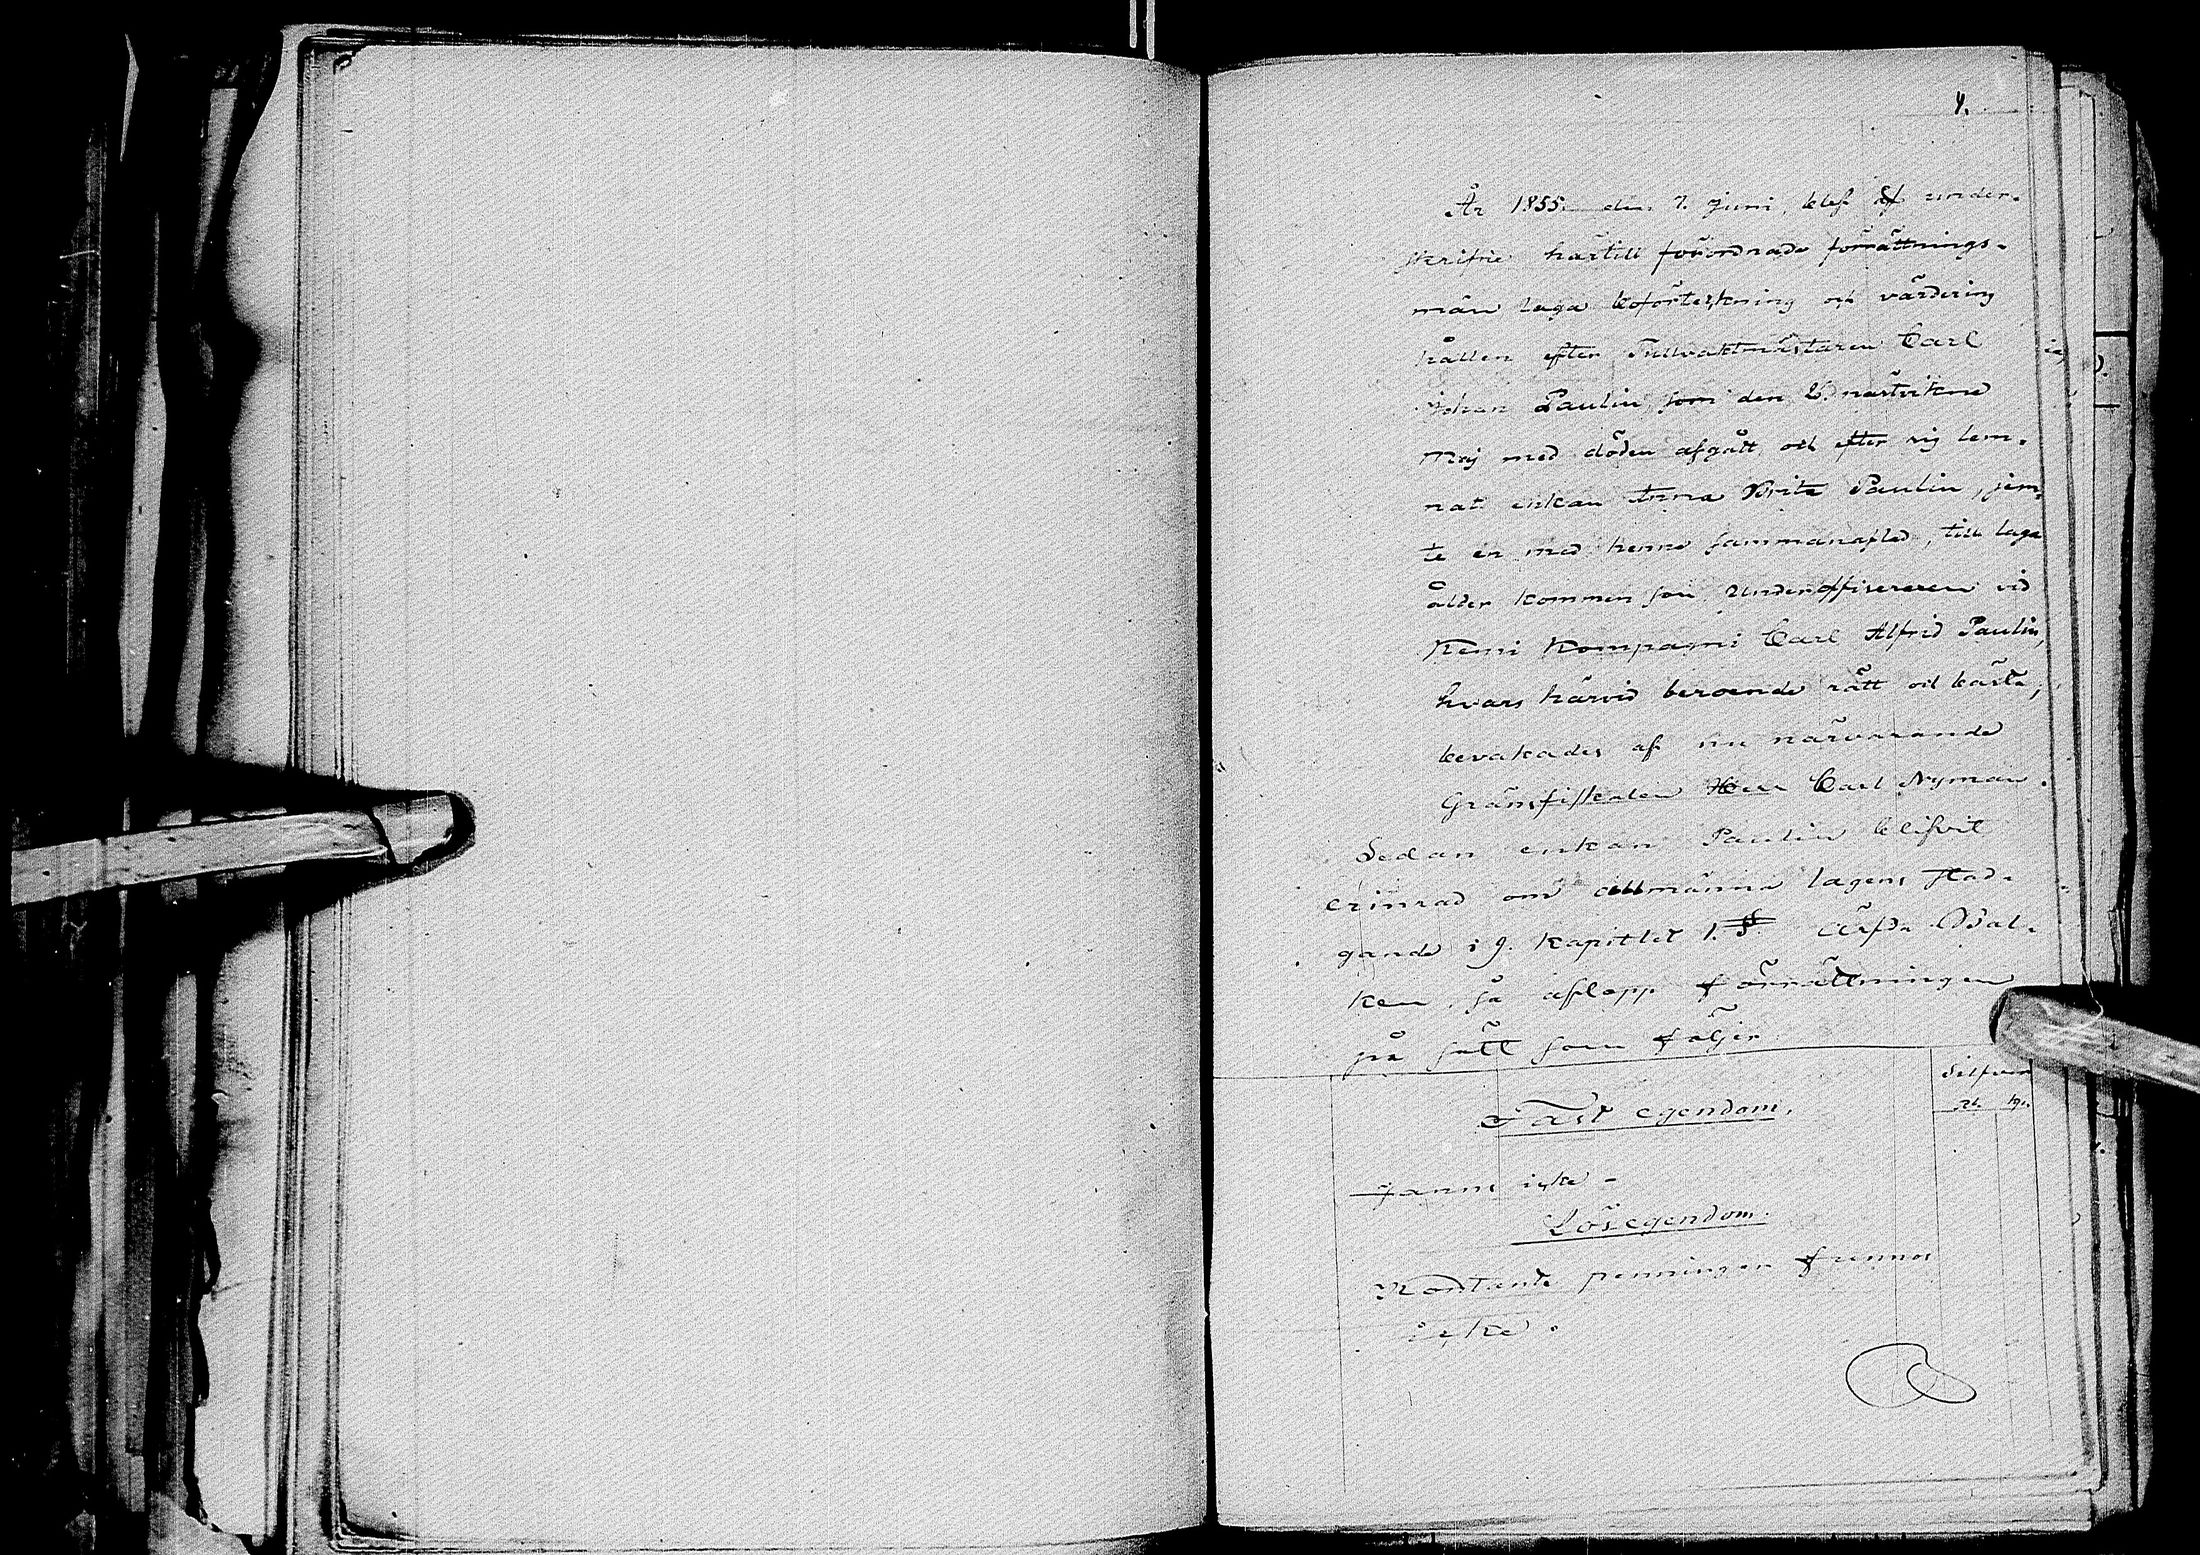 4.
År 1855 den 7. Juni, blef af under-
skrifne härtill förordnade förrättnings-
män laga boförteckning och värdering
hållen efter Tullvaktmästaren Carl
Johan Paulin, som den 26. nästvikne
Maj med döden afgått och efter sig lem-
nat enkan Anna Brita Paulin, jem-
te en med henne sammanaflad, till laga
ålder kommen son, Underofficeraren vid
Kemi Kompagni Carl Alfrid Paulin,
hvars härvid beroende rätt och bästa,
bevakades af nu närvarande
Gränsfiskalen Herr Carl Nyman.
Sedan enkan Paulin blifvit
erinrad om allmänna lagens stad-
gande i 9. Kapitlet 1. § Ärfda Bal-
ken, så aflopp förrättningen
på sätt som följer
Silfver
Rb. kp.
Fast egendom.
Fanns icke -
Lösegendom.
Kontanta penningar funnos
icke.